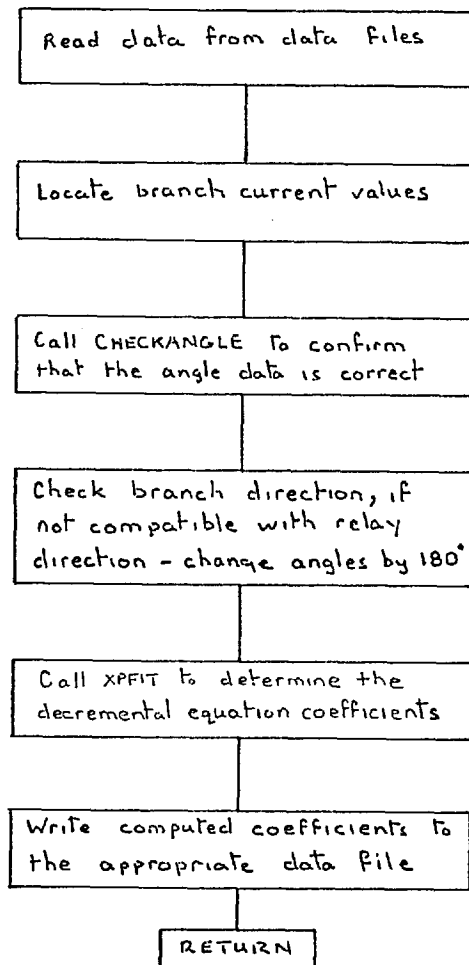 Read data from data files
Locate branch current values
Call CHECKANGLE to confirm
that the angle data is correct
Check branch direction, if
not compatible with relay
direction - change angles by 180°
Call XPFIT to determine the
decremental equation coefficients
Write computed coefficients to
the appropriate data file
RETURN